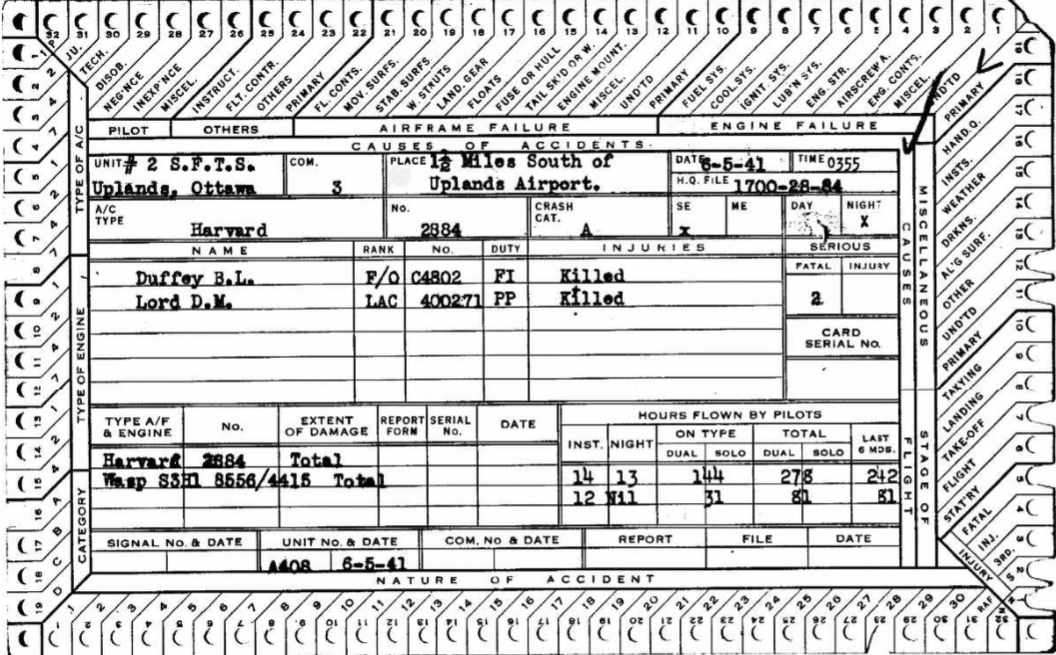 32 31 30 29 28 27 26 25 24 23 22 21 20 19 18 17 16 15 14 13 12 11 10 9 8 7 6 5 4 3 2 1
JU. TECH. DISOB. NEG'NCE INEXP'NCE MISCEL. INSTRUCT. FLT. CONTR. OTHERS PRIMARY FL. CONTS. MOV. SURFS. STAB. SURFS W. STRUTS LAND. GEAR FLOATS FUSE OR HULL TAIL SK'D OR W. ENGINE MOUNT. MISCEL. UND'TD PRIMARY FUEL SYS. COOL. SYS. IGNIT. SYS. LUB'N SYS. ENG. STR. AIRSCREW A. ENG. CONTS. MISCEL. UND'TD
PILOT OTHERS AIRFRAME FAILURE ENGINE FAILURE
CAUSES OF ACCIDENTS
UNIT # 2 S.F.T.S. COM. PLACE 1½ Miles South of DATE 6-5-41 TIME 0355
Uplands, Ottawa 3 Uplands Airport. H.Q. FILE 1700-28-84
A/C TYPE No. CRASH CAT. SE ME DAY NIGHT
Harvard 2884 A x X
NAME RANK No. DUTY INJURIES SERIOUS
FATAL INJURY
Duffey B.L. F/O C4802 FI Killed
Lord D.M. LAC 400271 PP Killed 2
CARD SERIAL No.
TYPE A/F & ENGINE No. EXTENT OF DAMAGE REPORT FORM SERIAL No. DATE HOURS FLOWN BY PILOTS
INST. NIGHT ON TYPE TOTAL LAST 6 MOS.
DUAL SOLO DUAL SOLO
Harvard 2884 Total
Wasp S3H1 8556/4415 Total 14 13 144 278 242
12 Nil 31 81 81
SIGNAL No. & DATE UNIT No. & DATE COM. No & DATE REPORT FILE DATE
A408 6-5-41
NATURE OF ACCIDENT
1 2 3 4 5 6 7 8 9 10 11 12 13 14 15 16 17 18 19 20 21 22 23 24 25 26 27 28 29 30 31 32
TYPE OF A/C
TYPE OF ENGINE
CATEGORY
CAUSES
FLIGHT
MISCELLANEOUS
STAGE OF
PRIMARY
HAND.Q.
INSTS.
WEATHER
DRKNS.
AL'G SURF.
OTHER
UND'TD
PRIMARY
TAKYING
LANDING
TAKE-OFF
FLIGHT
STAT'RY
FATAL
INJ.
3RD.
INJURY
RAF